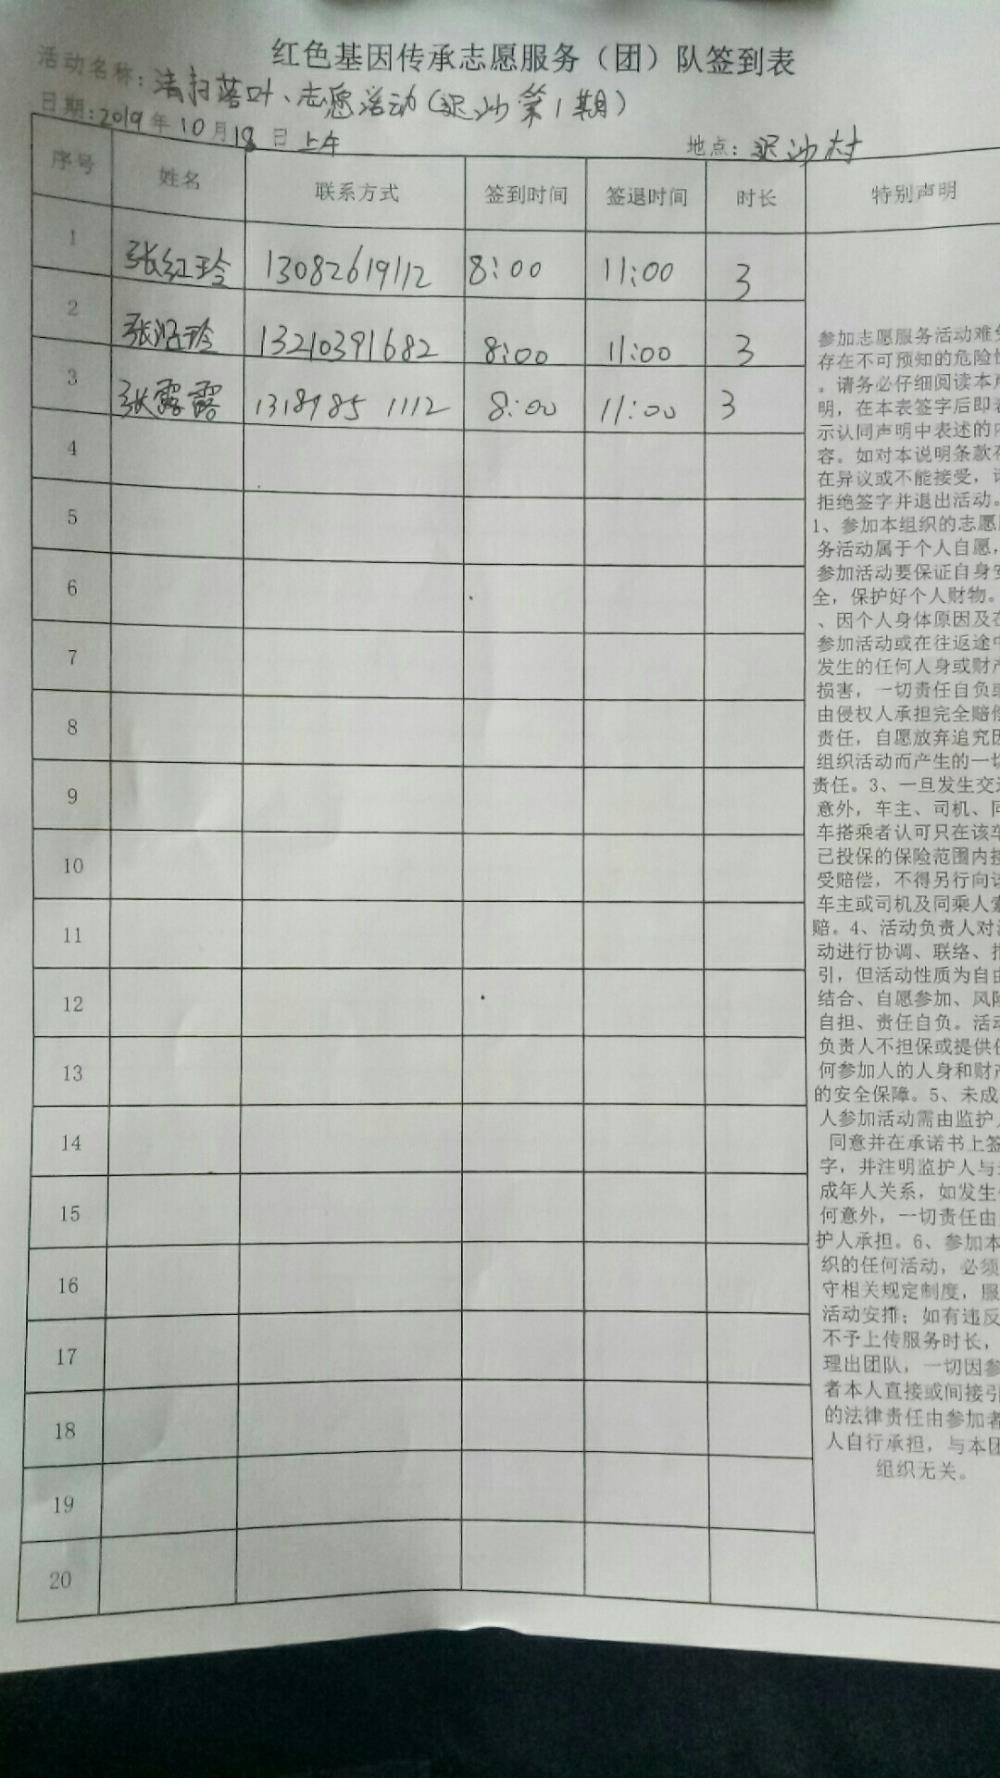 红色基因传承志愿服务（团）队签到表
活动名称：清扫落叶、志愿活动（迟沙第1期）
日期：2019年10月18日上午 地点：迟沙村
序号 姓名 联系方式 签到时间 签退时间 时长 特别声明
1 张红玲 13082619112 8:00 11:00 3
2 张 玲 13210391682 8:00 11:00 3
3 张露露 1318985 1112 8:00 11:00 3
4
5
6
7
8
9
10
11
12
13
14
15
16
17
18
19
20
参加志愿服务活动难
存在不可预知的危险
。请务必仔细阅读本
明，在本表签字后即
示认同声明中表述的
容。如对本说明条款
在异议或不能接受，
拒绝签字并退出活动。
1、参加本组织的志愿
务活动属于个人自愿，
参加活动要保证自身
全，保护好个人财物。
、因个人身体原因及在
参加活动或在往返途中
发生的任何人身或财产
损害，一切责任自负或
由侵权人承担完全赔偿
责任，自愿放弃追究因
组织活动而产生的一切
责任。3、一旦发生交
意外，车主、司机、同
车搭乘者认可只在该车
已投保的保险范围内
受赔偿，不得另行向
车主或司机及同乘人
赔。4、活动负责人对
动进行协调、联络、指
引，但活动性质为自由
结合、自愿参加、风险
自担、责任自负。活动
负责人不担保或提供
何参加人的人身和财产
的安全保障。5、未成
人参加活动需由监护
同意并在承诺书上签
字，并注明监护人与
成年人关系，如发生
何意外，一切责任由
护人承担。6、参加本
织的任何活动，必须
守相关规定制度，服
活动安排；如有违反
不予上传服务时长，
理出团队，一切因参
者本人直接或间接引
的法律责任由参加者
人自行承担，与本团
组织无关。